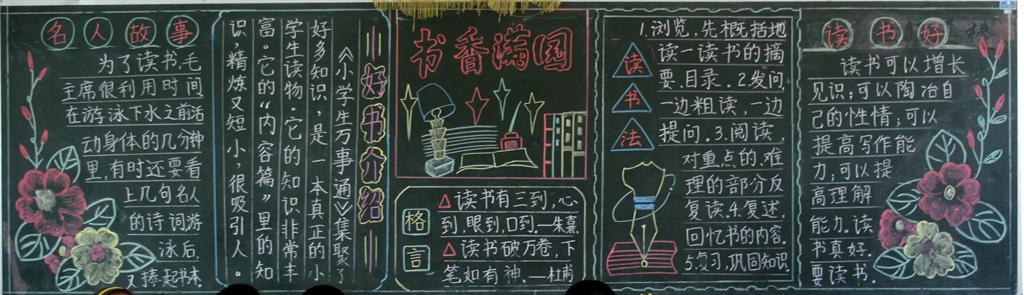 名人故事
为了读书,毛
主席很利用时间
在游泳下水之前活
动身体的几分钟
里,有时还要看
上几句名人
的诗词游
泳后,
又捧起书本.
好书介绍
《小学生万事通》集聚了
好多知识,是一本真正的小
学生读物.它的知识非常丰
富.它的“内容篇”里的知
识,精炼又短小,很吸引人.
书香满园
格言
△读书有三到,心
到,眼到,口到—朱熹
△读书破万卷,下
笔如有神.—杜甫
读书法
1.浏览,先概括地
读一读书的摘
要.目录.2发问,
一边粗读,一边
提问.3.阅读,
对重点的.难
理的部分反
复读.4.复述,
回忆书的内容.
5.复习,巩固知识.
读书好
读书可以增长
见识;可以陶冶自
己的性情;可以
提高写作能
力;可以提
高理解
能力.读
书真好.
要读书.